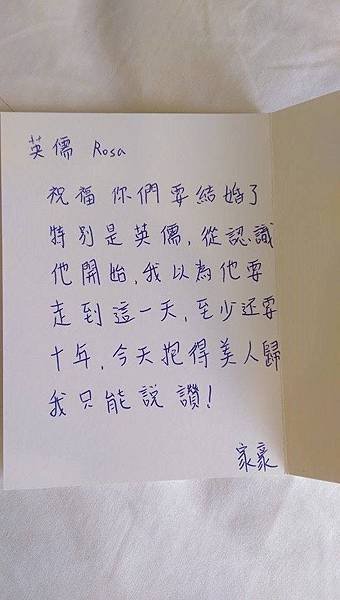 英儒 Rosa
祝福你們要結婚了
特別是英儒,從認識
他開始,我以為他要
走到這一天,至少还要
十年,今天抱得美人歸
我只能說 讚!
家豪